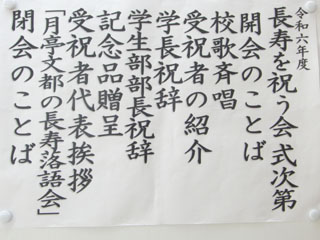 令和六年度
長寿を祝う会 式次第
開会のことば
校歌斉唱
受祝者の紹介
学長祝辞
学生部部長祝辞
記念品贈呈
受祝者代表挨拶
「月亭文都の長寿落語会」
閉会のことば